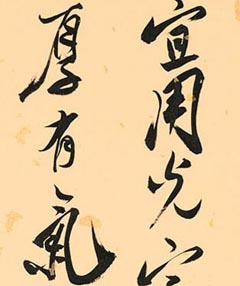 宜用光
厚有氣